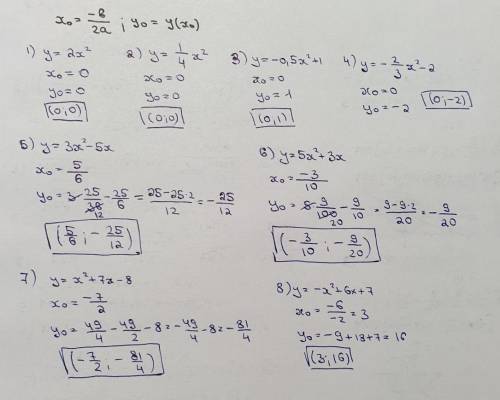 x₀ = -b/2a ; y₀ = y(x₀)
1) y = 2x²
x₀ = 0
y₀ = 0
(0;0)
2) y = 1/4 x²
x₀ = 0
y₀ = 0
(0;0)
3) y = -0,5x²+1
x₀ = 0
y₀ = 1
(0;1)
4) y = -2/3 x² - 2
x₀ = 0
y₀ = -2
(0;-2)
5) y = 3x² - 5x
x₀ = 5/6
y₀ = 3·25/36 12 - 25/6 = 25-25·2/12 = -25/12
(5/6 ; -25/12)
6) y = 5x² + 3x
x₀ = -3/10
y₀ = 5·9/100 20 - 9/10 = 9-9·2/20 = -9/20
(-3/10 ; -9/20)
7) y = x² + 7x - 8
x₀ = -7/2
y₀ = 49/4 - 49/2 - 8 = -49/4 - 8 = -81/4
(-7/2 ; -81/4)
8) y = -x² + 6x + 7
x₀ = -6/-2 = 3
y₀ = -9 + 18 + 7 = 16
(3;16)